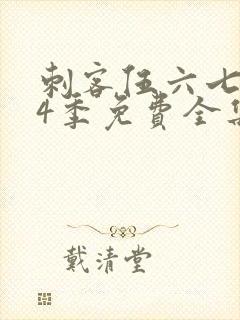 刺客伍六七
4季免費全集
戴清堂